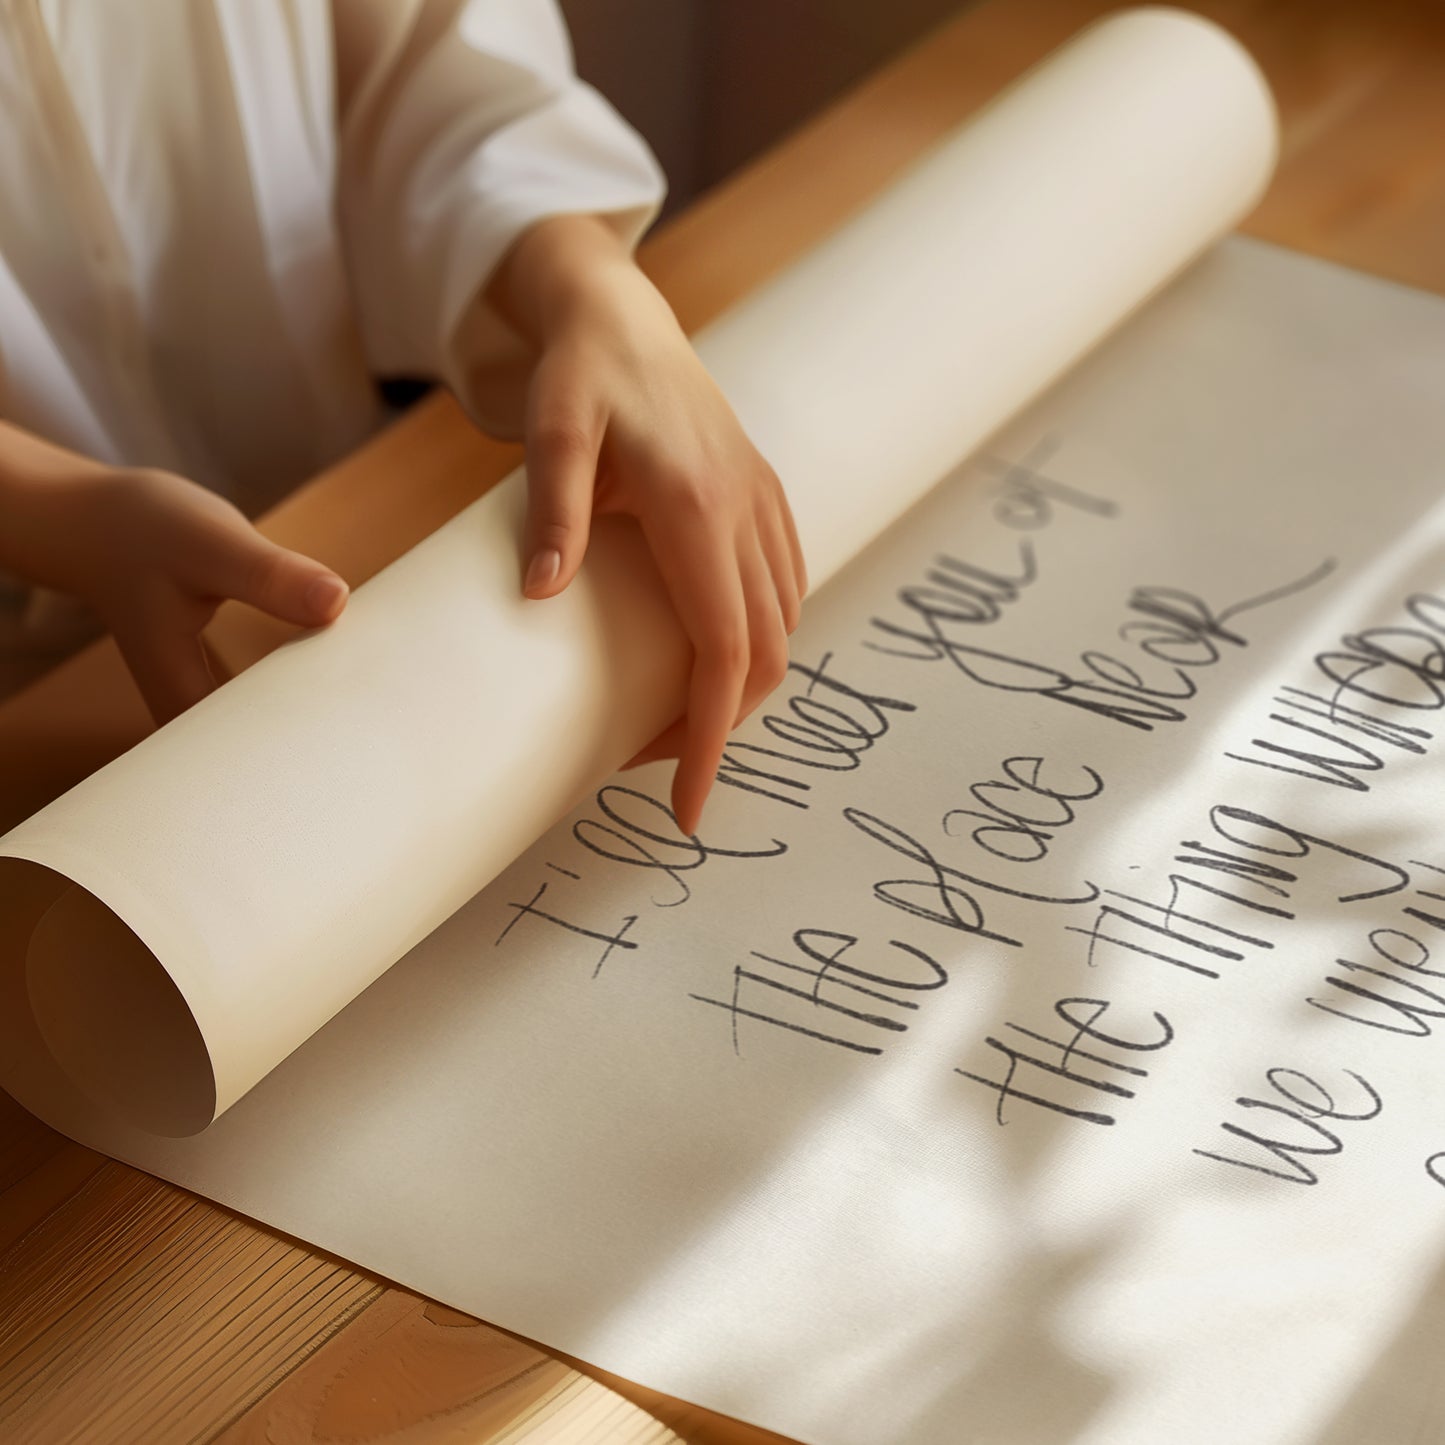 I'll meet you at
THE place Near
THE THING WHERE
we went